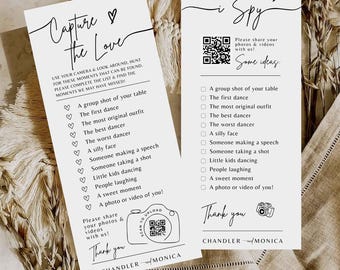 Capture
the Love
USE YOUR CAMERA & LOOK AROUND, HUNT
FOR THESE MOMENTS THAT CAN BE FOUND.
PLEASE COMPLETE THE LIST & FIND THE
MOMENTS WE MAY HAVE MISSED!
A group shot of your table
The first dance
The most original outfit
The best dancer
The worst dancer
A silly face
Someone making a speech
Someone taking a shot
Little kids dancing
People laughing
A sweet moment
A photo or video of you!
Please share
your photos
& videos
with us!
Thank you
SCAN TO UPLOAD
CHANDLER and MONICA
i Spy
Please share your
photos & videos
with us!
Some ideas
A group shot of your table
The first dance
The most original outfit
The best dancer
The worst dancer
A silly face
Someone making a speech
Someone taking a shot
Little kids dancing
People laughing
A sweet moment
A photo or video of you!
Thank you
CHANDLER and MONICA